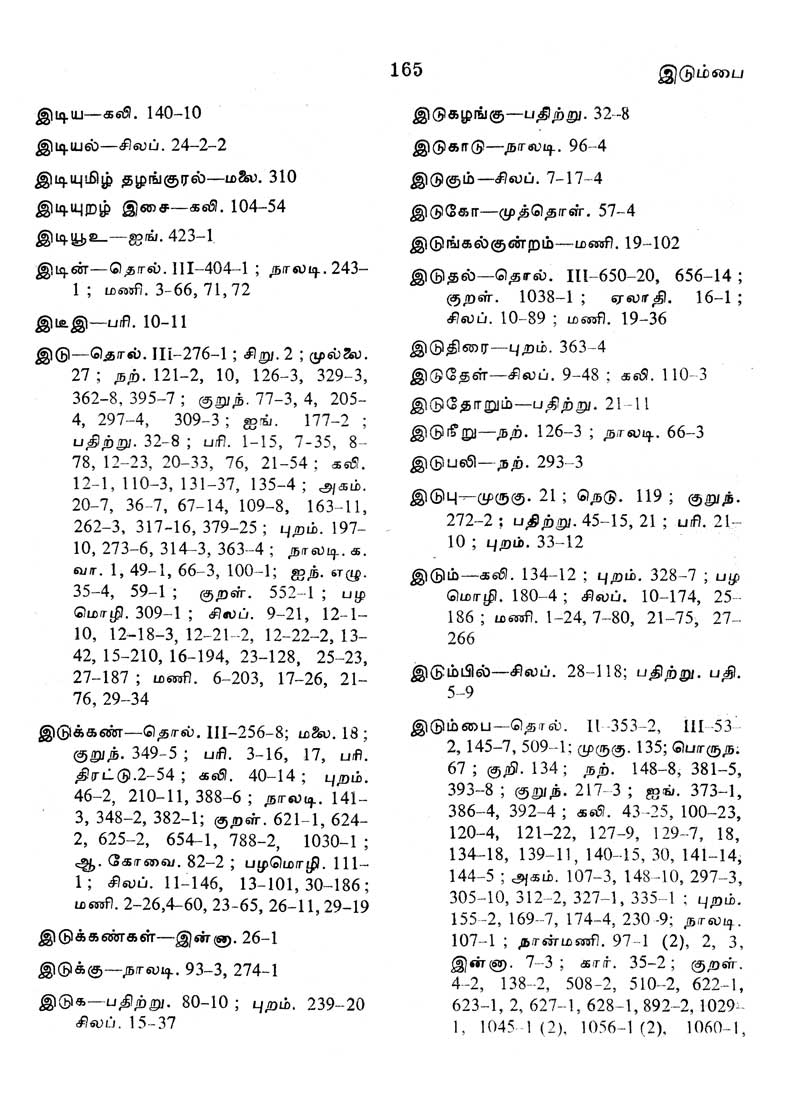 165
இடும்பை
இடிய—கலி. 140–10
இடியல்—சிலப். 24–2–2
இடியுமிழ் தழங்குரல்—மலை. 310
இடியுறழ் இசை—கலி. 104–54
இடியூஉ—ஐங். 423–1
இடின்—தொல். III–404–1 ; நாலடி. 243–
1 ; மணி. 3–66, 71, 72
இடீஇ—பரி. 10–11
இடு—தொல். IIi–276–1 ; சிறு. 2 ; முல்லை.
27 ; நற். 121–2, 10, 126–3, 329–3,
362–8, 395–7 ; குறுந். 77–3, 4, 205–
4, 297–4, 309–3 ; ஐங். 177–2 ;
பதிற்று. 32–8 ; பரி. 1–15, 7–35, 8–
78, 12–23, 20–33, 76, 21–54 ; கலி.
12–1, 110–3, 131–37, 135–4 ; அகம்.
20–7, 36–7, 67–14, 109–8, 163–11,
262–3, 317–16, 379–25 ; புறம். 197–
10, 273–6, 314–3, 363–4 ; நாலடி. க.
வா. 1, 49–1, 66–3, 100–1; ஐந். எழு.
35–4, 59–1 ; குறள். 552–1 ; பழ
மொழி. 309–1 ; சிலப். 9–21, 12–1–
10, 12–18–3, 12–21–2, 12–22–2, 13–
42, 15–210, 16–194, 23–128, 25–23,
27–187 ; மணி. 6–203, 17–26, 21–
76, 29–34
இடுக்கண்—தொல். III–256–8; மலை. 18 ;
குறுந். 349–5 ; பரி. 3–16, 17, பரி.
திரட்டு.2–54 ; கலி. 40–14 ; புறம்.
46–2, 210–11, 388–6 ; நாலடி. 141–
3, 348–2, 382–1; குறள். 621–1, 624–
2, 625–2, 654–1, 788–2, 1030–1 ;
ஆ. கோவை. 82–2 ; பழமொழி. 111–
1 ; சிலப். 11–146, 13–101, 30–186 ;
மணி. 2–26,4–60, 23–65, 26–11, 29–19
இடுக்கண்கள்—இன்னா. 26–1
இடுக்கு—நாலடி. 93–3, 274–1
இடுக—பதிற்று. 80–10 ; புறம். 239–20
சிலப். 15–37
இடுகழங்கு—பதிற்று. 32–8
இடுகாடு—நாலடி. 96–4
இடுகும்—சிலப். 7–17–4
இடுகோ—முத்தொள். 57–4
இடுங்கல்குன்றம்—மணி. 19–102
இடுதல்—தொல். III–650–20, 656–14 ;
குறள். 1038–1 ; ஏலாதி. 16–1 ;
சிலப். 10–89 ; மணி. 19–36
இடுதிரை—புறம். 363–4
இடுதேள்—சிலப். 9–48 ; கலி. 110–3
இடுதோறும்—பதிற்று. 21–11
இடுநீறு—நற். 126–3 ; நாலடி. 66–3
இடுபலி—நற். 293–3
இடுபு—முருகு. 21 ; நெடு. 119 ; குறுந்.
272–2 ; பதிற்று. 45–15, 21 ; பரி. 21–
10 ; புறம். 33–12
இடும்—கலி. 134–12 ; புறம். 328–7 ; பழ
மொழி. 180–4 ; சிலப். 10–174, 25–
186 ; மணி. 1–24, 7–80, 21–75, 27–
266
இடும்பில்—சிலப். 28–118; பதிற்று. பதி.
5–9
இடும்பை—தொல். II–353–2, III–53–
2, 145–7, 509–1; முருகு. 135; பொருந.
67 ; குறி. 134 ; நற். 148–8, 381–5,
393–8 ; குறுந். 217–3 ; ஐங். 373–1,
386–4, 392–4 ; கலி. 43–25, 100–23,
120–4, 121–22, 127–9, 129–7, 18,
134–18, 139–11, 140–15, 30, 141–14,
144–5 ; அகம். 107–3, 148–10, 297–3,
305–10, 312–2, 327–1, 335–1 ; புறம்.
155–2, 169–7, 174–4, 230–9; நாலடி.
107–1 ; நான்மணி. 97–1 (2), 2, 3,
இன்னா. 7–3 ; கார். 35–2 ; குறள்.
4–2, 138–2, 508–2, 510–2, 622–1,
623–1, 2, 627–1, 628–1, 892–2, 1029–
1, 1045–1 (2), 1056–1 (2), 1060–1,